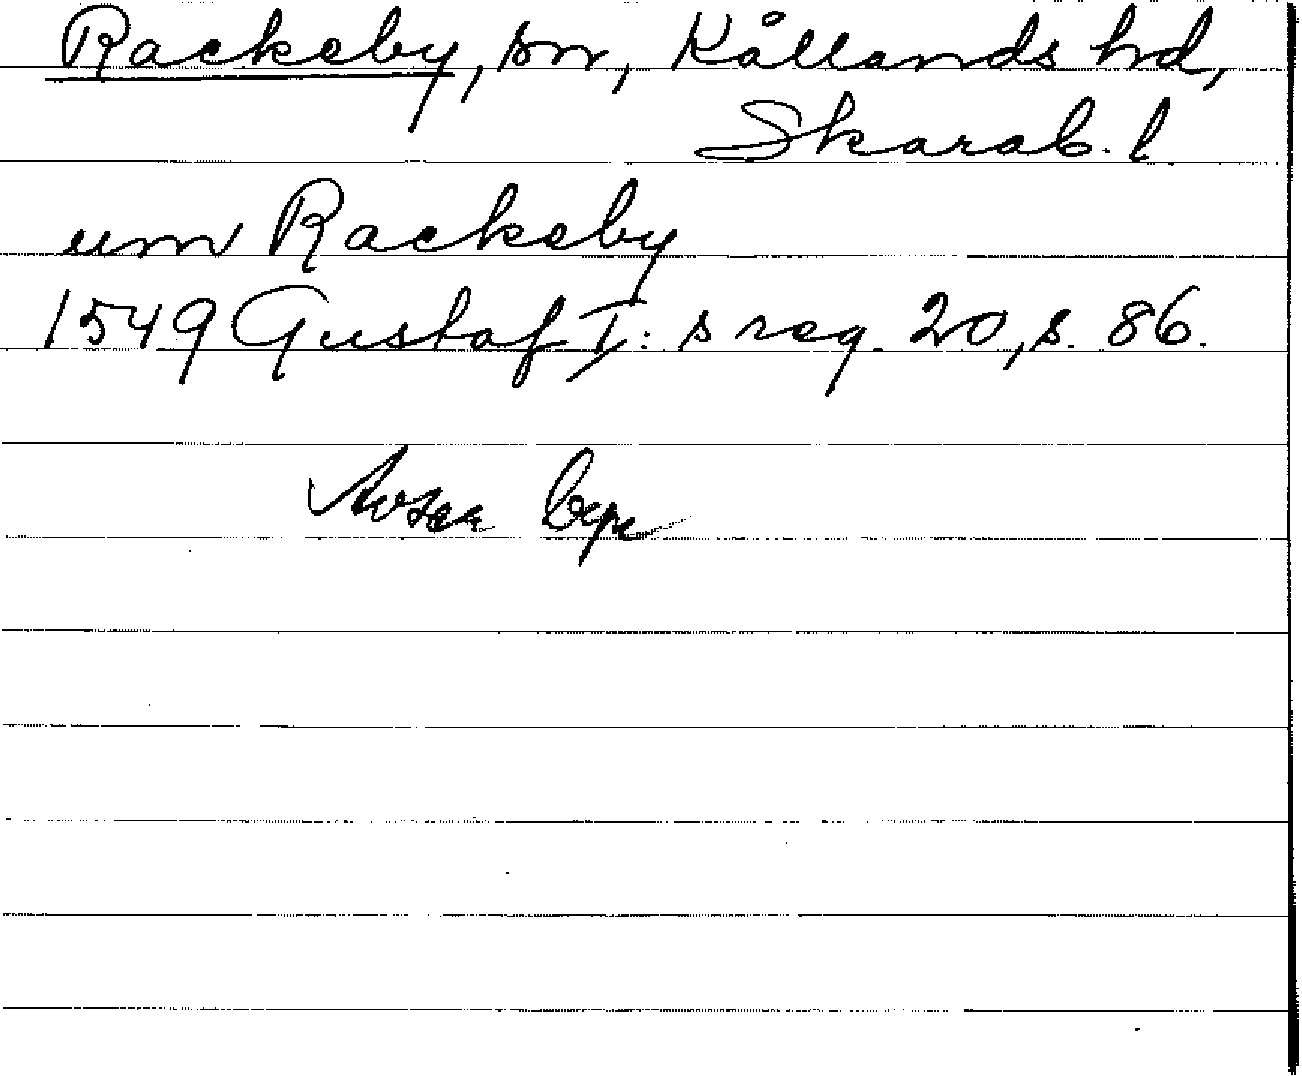 Rackeby, sn, Kållands hd,
Skarab. l
um Rackeby
1549 Gustaf I:s reg. 20, s. 86.
Avser